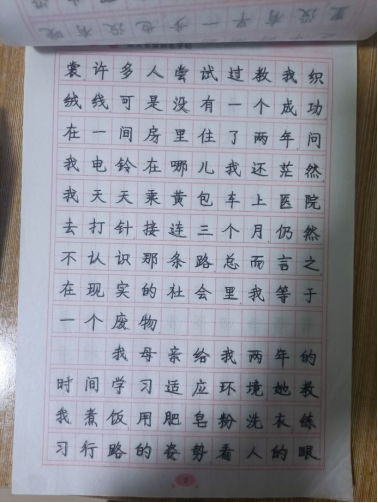 里没有早一步也没有晚
裳许多人尝试过教我织
绒线可是没有一个成功
在一间房里住了两年问
我电铃在哪儿我还茫然
我天天乘黄包车上医院
去打针接连三个月仍然
不认识那条路总而言之
在现实的社会里我等于
一个废物
我母亲给我两年的
时间学习适应环境她教
我煮饭用肥皂粉洗衣练
习行路的姿势看人的眼